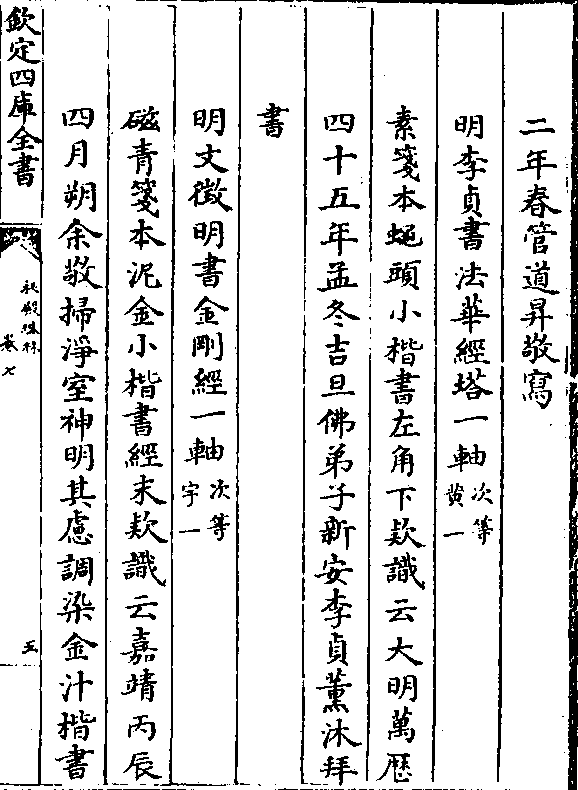 二年春管道昇敬寫
明李貞書法華經塔一軸次等黄一
素箋本蠅頭小楷書左角下欵識云大明萬歷
四十五年孟冬吉旦佛弟子新安李貞薰沐拜
書
明文徵明書金剛經一軸次等宇一
磁青箋本泥金小楷書經末欵識云嘉靖丙辰
四月朔余敬掃淨室神明其慮調染金汁楷書
欽定四庫全書
秘殿珠林
卷七
五